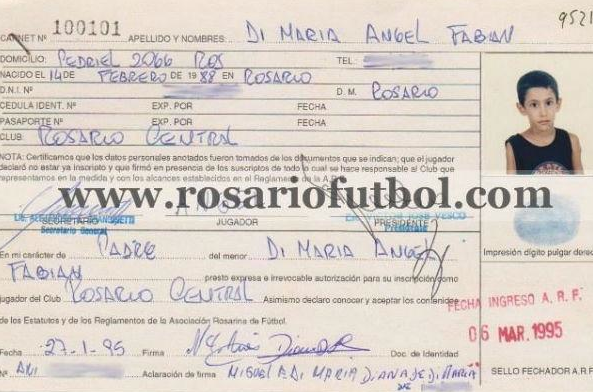 9521
CARNET Nº 100101 APELLIDO Y NOMBRES: DI MARIA ANGEL FABIAN
DOMICILIO: PEDRIEL 2066 ROS TEL.:
NACIDO EL 14 DE FEBRERO DE 1988 EN ROSARIO
D.N.I. Nº D. M. ROSARIO
CEDULA IDENT. Nº EXP. POR FECHA
PASAPORTE Nº EXP. POR FECHA
CLUB: ROSARIO CENTRAL
NOTA: Certificamos que los datos personales anotados fueron tomados de los documentos que se indican; que el jugador
declaró no estar ya inscripto y que firmó en presencia de los suscriptos de todo lo cual se hace responsable el Club que
representamos en la medida y con los alcances establecidos en el Reglamento de la A.R.F.
www.rosariofutbol.com
SECRETARIO JUGADOR PRESIDENTE
Secretario General Presidente
En mi carácter de PADRE del menor DI MARIA ANGEL
FABIAN presto expresa e irrevocable autorización para su inscripción como
jugador del Club ROSARIO CENTRAL. Asimismo declaro conocer y aceptar los contenidos
de los Estatutos y de los Reglamentos de la Asociación Rosarina de Fútbol.
Fecha 27-1-95 Firma Doc. de Identidad
Nº Aclaración de firma MIGUEL A. DI MARIA DIANA DE DI MARIA
Impresión dígito pulgar derecho
FECHA INGRESO A. R. F.
06 MAR. 1995
SELLO FECHADOR A.R.F.